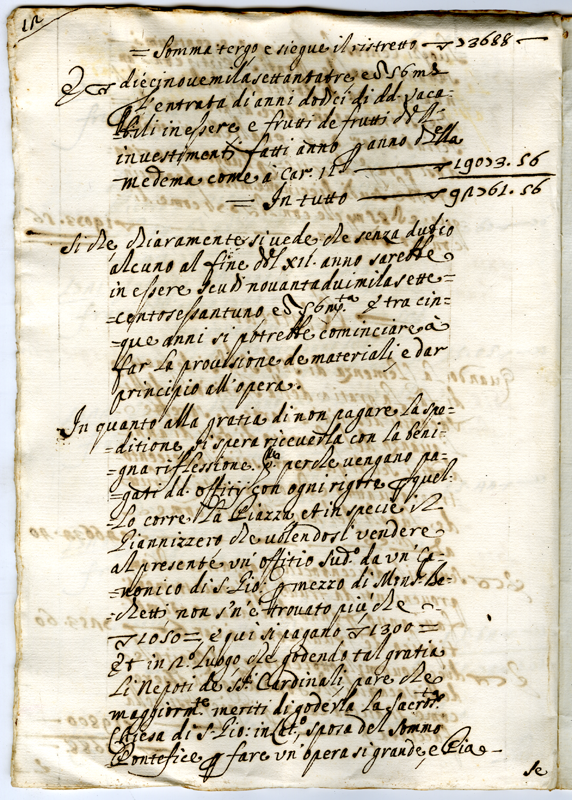 12
= Somma tergo e siegue il ristretto — ▽ 73688 —
E ▽ diecinovemilasettantatre e ₰ 56 m.ta
p l'entrata di anni dodici di dd. vaca-
bili in essere e frutti de frutti delli
investimenti fatti anno p anno della
medema come à Car. 11 — ▽ 19073. 56
= In tutto — ▽ 92761. 56
Si che chiaramente si vede che senza dubio
alcuno al fine del XII. anno sarebbe
in essere scudi novantaduimilasette-
=centosessantuno e ₰ 56 m.ta E tra cin-
=que anni si potrebbe cominciare à
far la provisione de materiali, e dar
principio all'opera.
In quanto alla gratia di non pagare la spe-
=ditione si spera riceverla con la beni-
=gna riflessione p.a perche vengano pa-
=gati dd. offitij con ogni rigore p quel-
lo corre la Piazza et in specie il
Giannizzero che volendosi vendere
al presente un' offitio sud.o da un' Ca-
=nonico di S. Gio: p mezzo di Mons.r Be-
=chetti non s'n'è trovato più che
▽ 1050 = e qui si pagano ▽ 1300 =
Et in 2.o luogo che godendo tal gratia
li Nepoti de SS.ri Cardinali, pare che
maggiorm.te meriti di goderla la Sacros.ta
Chiesa di S. Gio: in Lat.o sposa del Sommo
Pontefice p fare un' opera si grande, e Pia —
Se